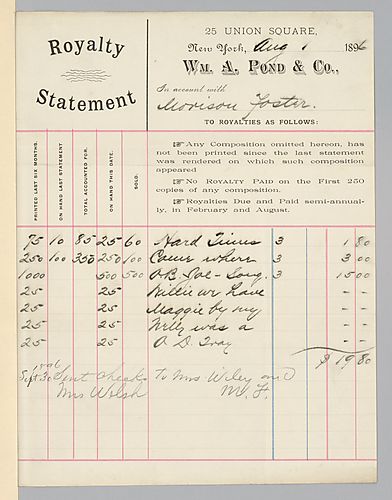 Royalty
Statement
25 UNION SQUARE,
New York, Aug 1 1896
WM. A. POND & CO.,
In account with
Morison Foster.
TO ROYALTIES AS FOLLOWS:
PRINTED LAST SIX MONTHS.
ON HAND LAST STATEMENT
TOTAL ACCOUNTED FOR.
ON HAND THIS DATE.
SOLD.
☞ Any Composition omitted hereon, has
not been printed since the last statement
was rendered on which such composition
appeared
☞ NO ROYALTY PAID on the First 250
copies of any composition.
☞ Royalties Due and Paid semi-annual-
ly, in February and August.
75 10 85 25 60 Hard Times 3 1 80
250 100 350 250 100 Come where 3 3 00
1000 500 500 O. B. Joe - Song. 3 15 00
25 25 Willie we have - -
25 25 Maggie by my - -
25 25 Nelly was a - -
25 25 O. D. Tray - -
$ 19 80
Sept 30 Sent checks to Mrs Wiley and
Mrs Welsh M. F.